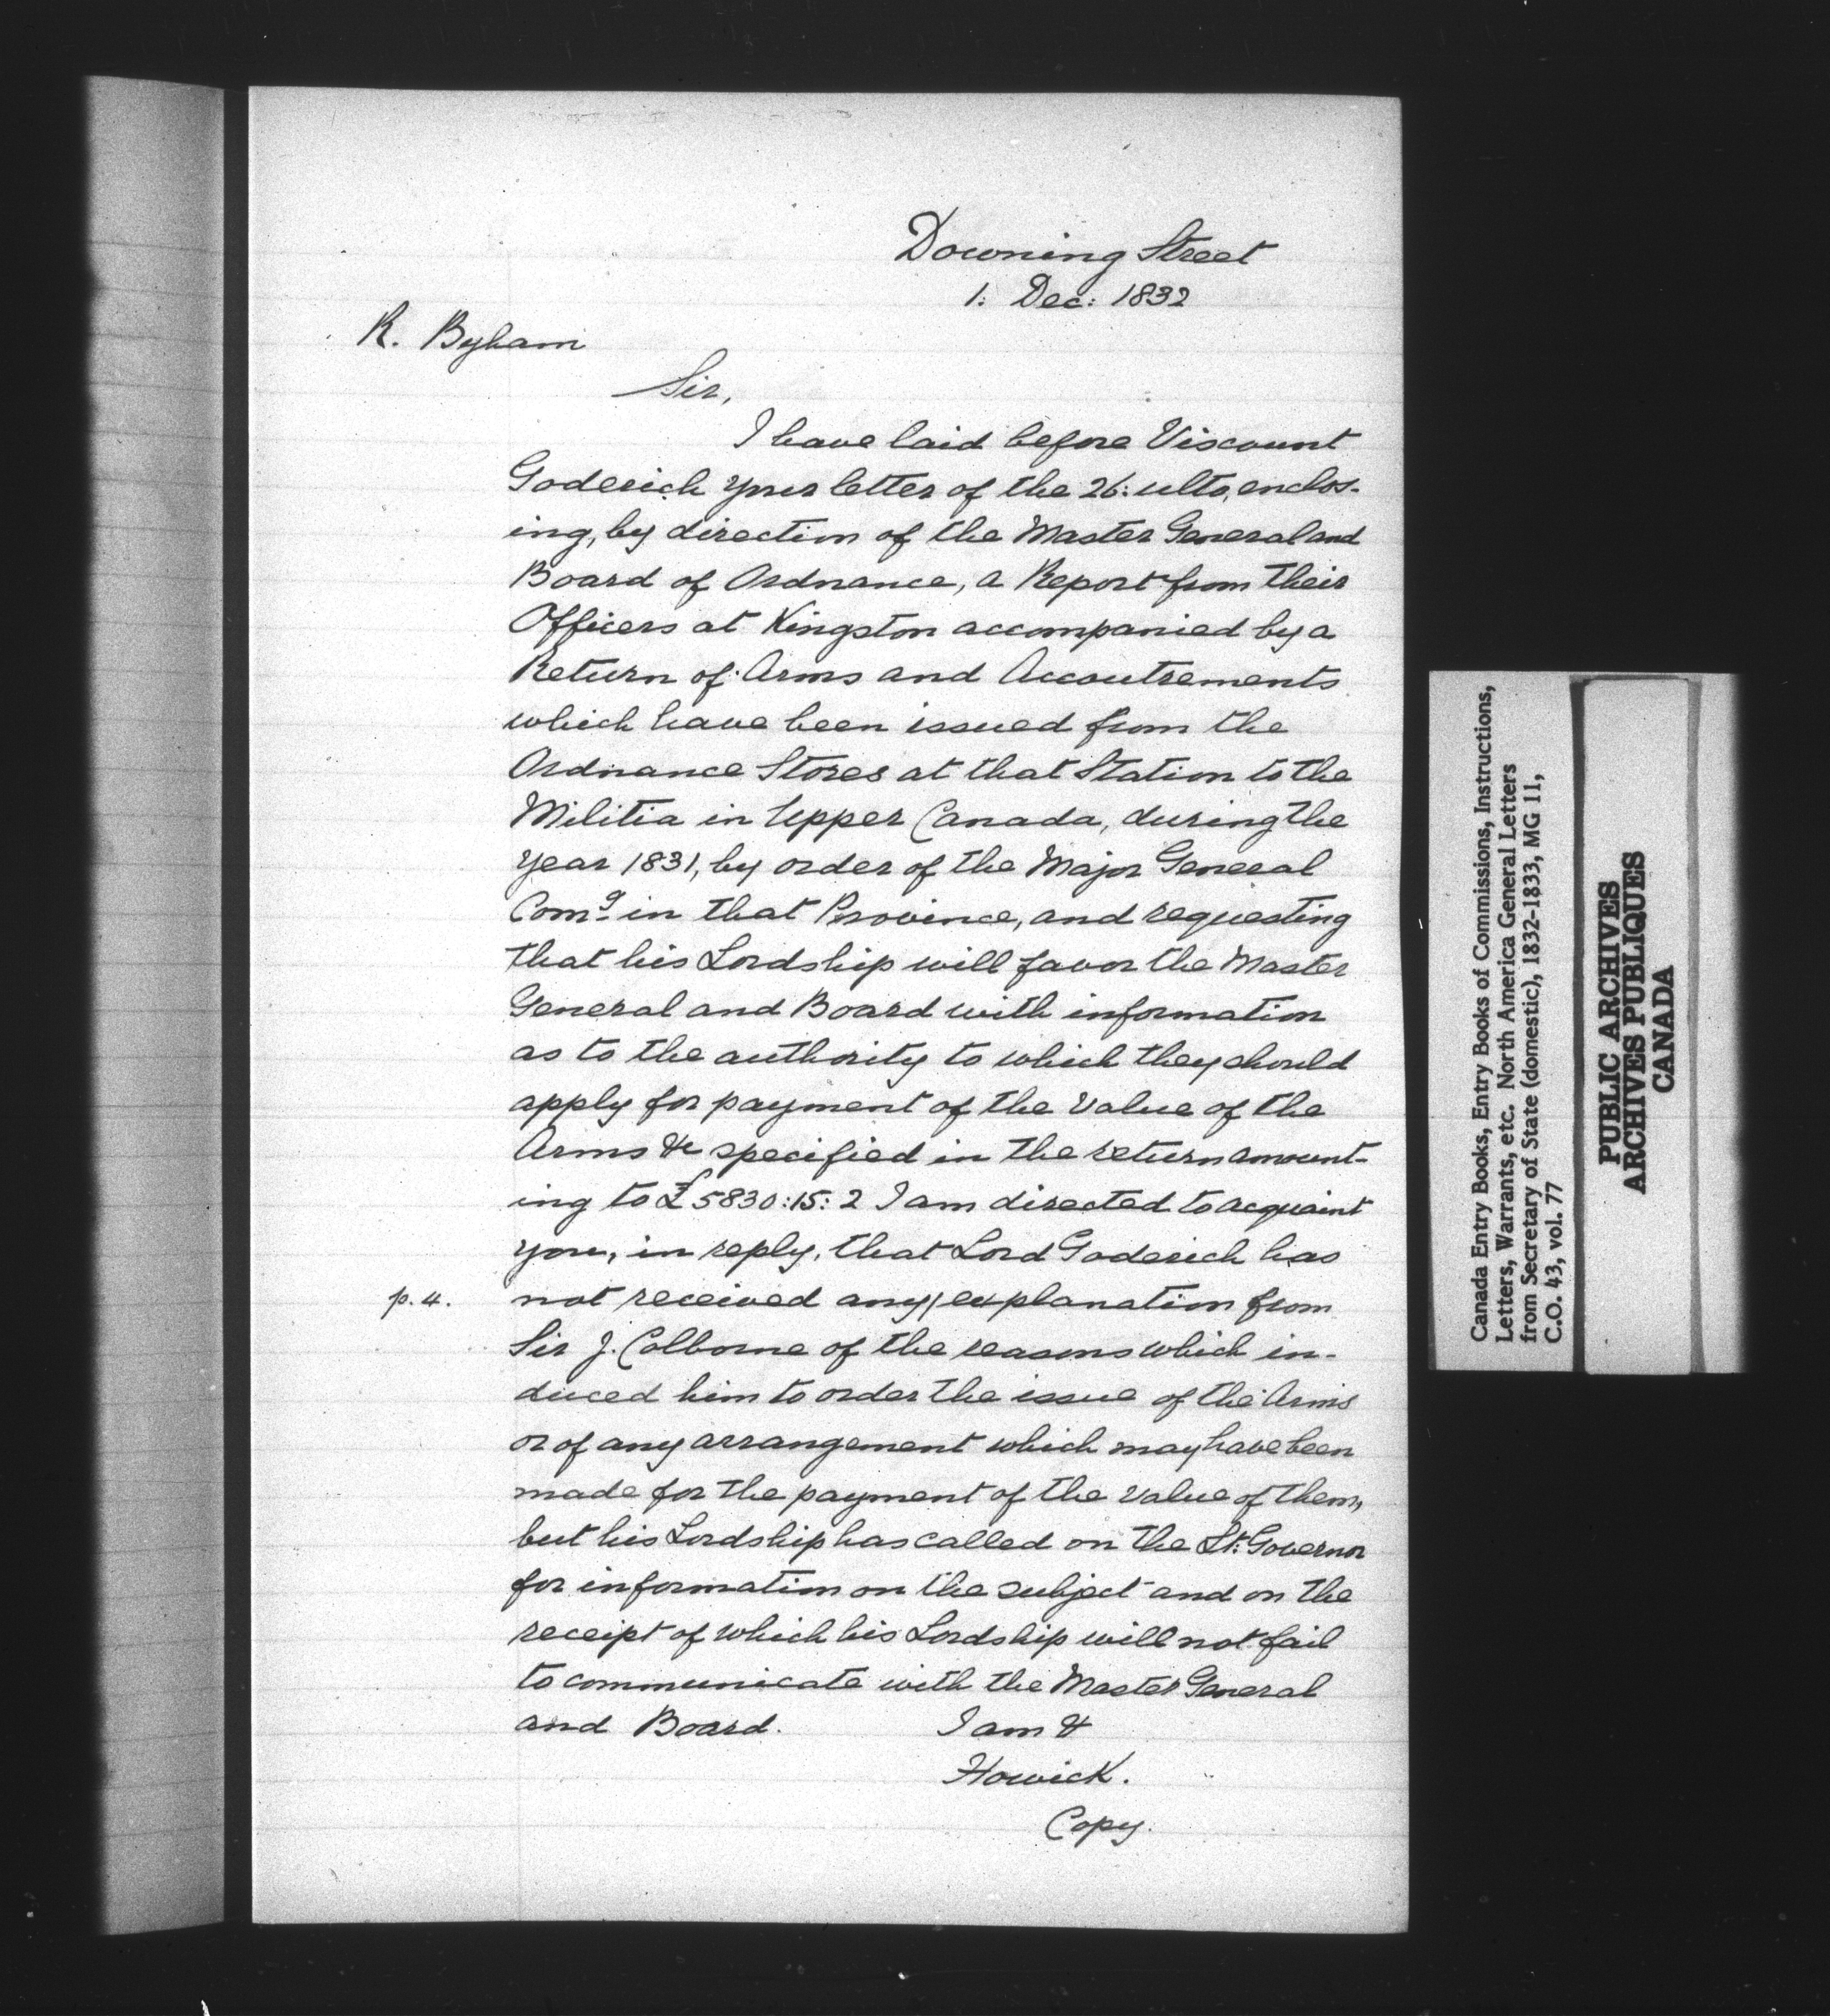 Downing Street
1: Dec: 1832
R. Byham
Sir,
I have laid before Viscount
Goderich your letter of the 26: ulto, enclos-
ing, by direction of the Master General and
Board of Ordnance, a Report from their
Officers at Kingston accompanied by a
Return of Arms and Accoutrements
which have been issued from the
Ordnance Stores at that Station to the
Militia in Upper Canada, during the
year 1831, by order of the Major General
Comg in that Province, and requesting
that his Lordship will favor the Master
General and Board with information
as to the authority to which they should
apply for payment of the value of the
Arms &c specified in the return amount-
ing to £5830:15:2 I am directed to acquaint
you, in reply, that Lord Goderich has
p. 4. not received any/explanation from
Sir J. Colborne of the reasons which in-
duced him to order the issue of the Arms
or of any arrangement which may have been
made for the payment of the value of them,
but his Lordship has called on the Lt: Governor
for information on the subject and on the
receipt of which his Lordship will not fail
to communicate with the Master General
and Board. I am &
Howick.
Copy.
Canada Entry Books, Entry Books of Commissions, Instructions,
Letters, Warrants, etc. North America General Letters
from Secretary of State (domestic), 1832-1833, MG 11,
C.O. 43, vol. 77
PUBLIC ARCHIVES
ARCHIVES PUBLIQUES
CANADA